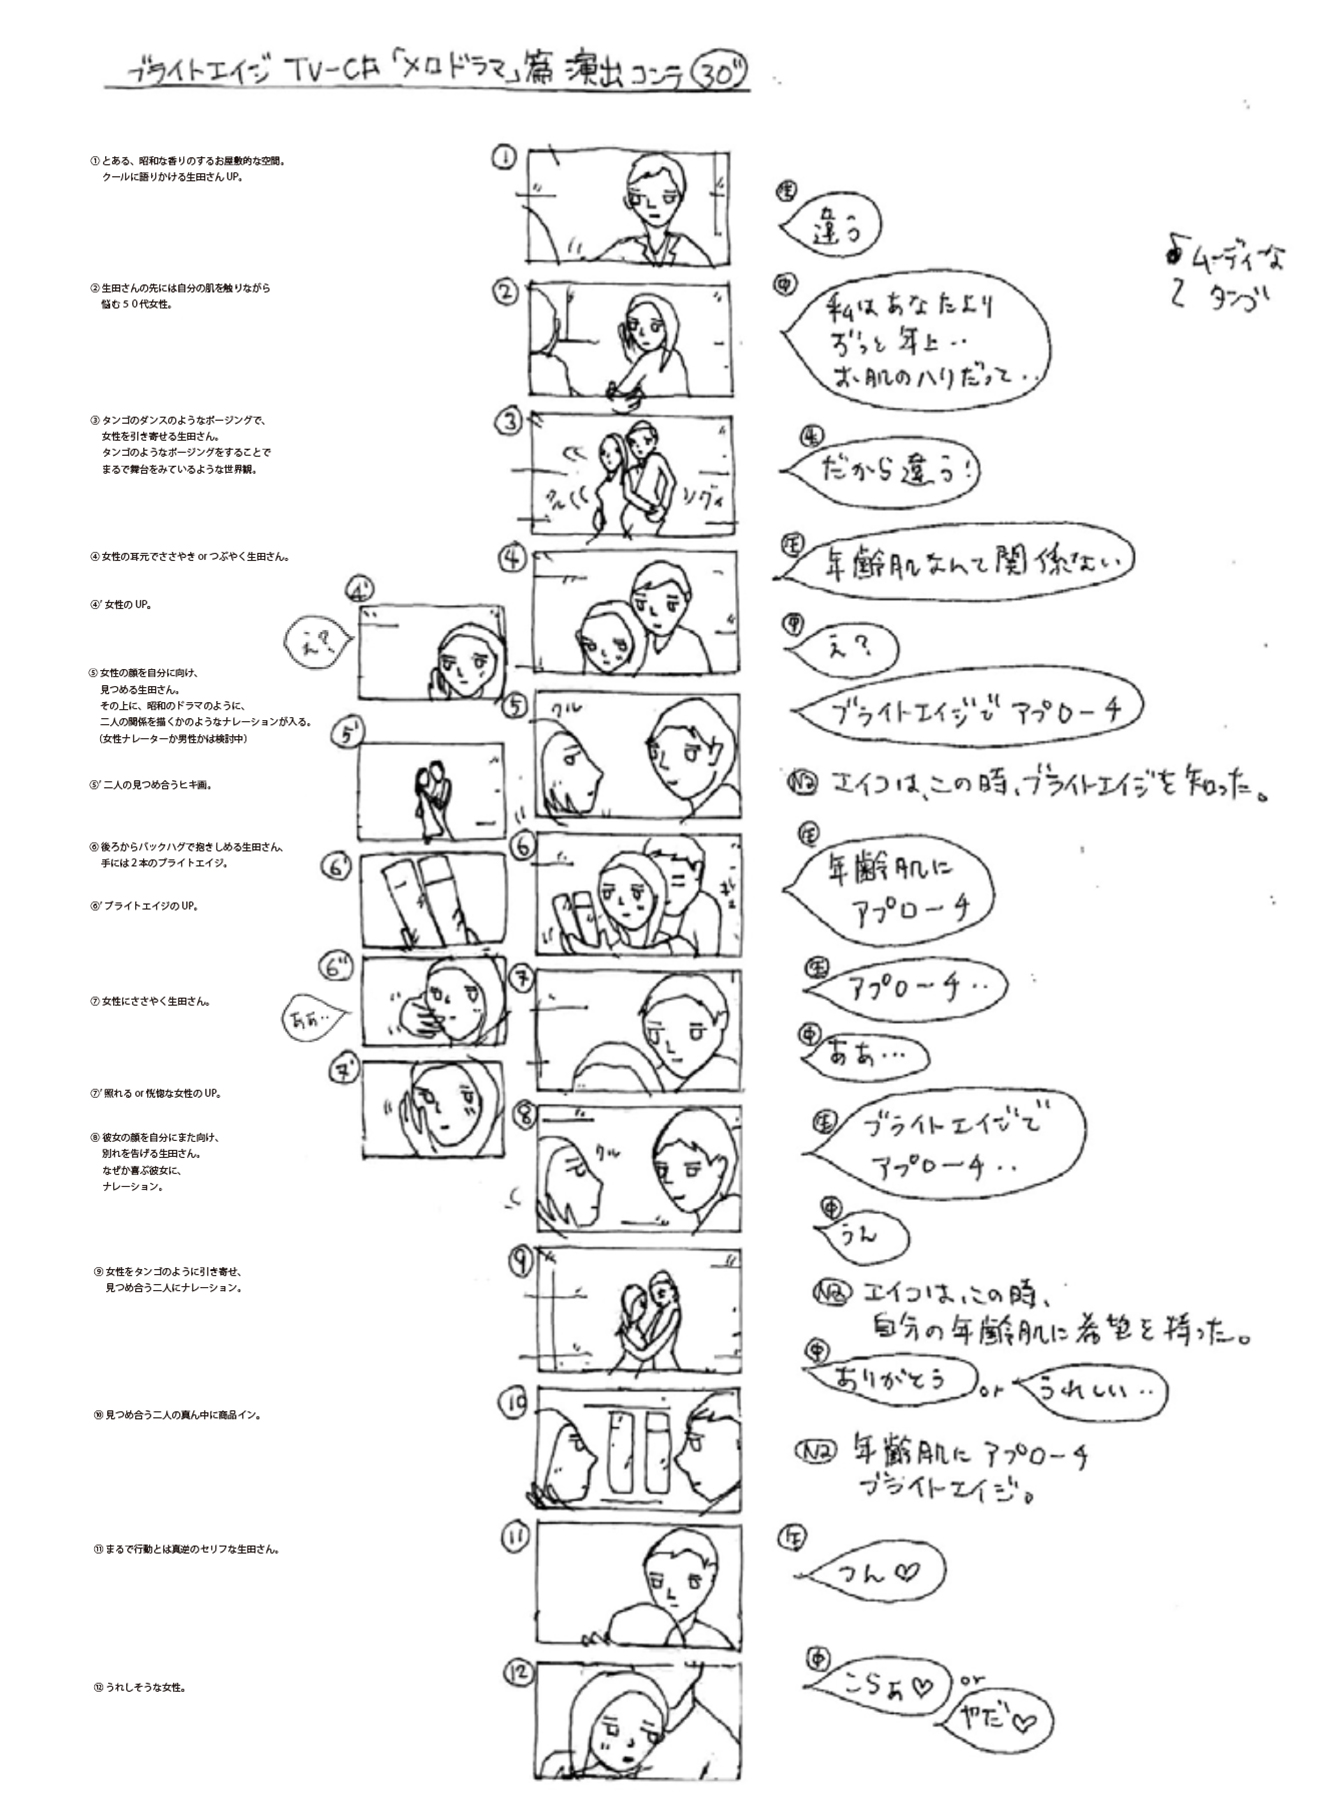 ブライトエイジ TV-CM「メロドラマ」篇 演出コンテ 30"
① とある、昭和な香りのするお屋敷的な空間。
クールに語りかける生田さん UP。
①
生
違う
♪ムーディな
タンゴ
② 生田さんの先には自分の肌を触りながら
悩む５０代女性。
②
中
私はあなたより
ずっと年上‥
お肌のハリだって‥
③ タンゴのダンスのようなポージングで、
女性を引き寄せる生田さん。
タンゴのようなポージングをすることで
まるで舞台をみているような世界観。
③
クル
グィ
生
だから違う!
④ 女性の耳元でささやき or つぶやく生田さん。
④
生
年齢肌なんて関係ない
④' 女性の UP。
④'
え?
中
え?
⑤ 女性の顔を自分に向け、
見つめる生田さん。
その上に、昭和のドラマのように、
二人の関係を描くかのようなナレーションが入る。
(女性ナレーターか男性かは検討中)
⑤
クル
ブライトエイジで アプローチ
⑤' 二人の見つめ合うヒキ画。
⑤'
Na エイコは、この時、ブライトエイジを知った。
⑥ 後ろからバックハグで抱きしめる生田さん、
手には２本のブライトエイジ。
⑥
生
年齢肌に
アプローチ
⑥' ブライトエイジの UP。
⑥'
⑥"
ああ‥
⑦ 女性にささやく生田さん。
⑦
生
アプローチ‥
中
ああ…
⑦' 照れる or 恍惚な女性の UP。
⑦'
⑧ 彼女の顔を自分にまた向け、
別れを告げる生田さん。
なぜか喜ぶ彼女に、
ナレーション。
⑧
クル
生
ブライトエイジで
アプローチ‥
中
うん
⑨ 女性をタンゴのように引き寄せ、
見つめ合う二人にナレーション。
⑨
Na エイコは、この時、
自分の年齢肌に希望を持った。
中
ありがとう or うれしい‥
⑩ 見つめ合う二人の真ん中に商品イン。
⑩
Na 年齢肌に アプローチ
ブライトエイジ。
⑪ まるで行動とは真逆のセリフな生田さん。
⑪
生
つん♡
⑫ うれしそうな女性。
⑫
中
こらぁ♡ or
やだ♡